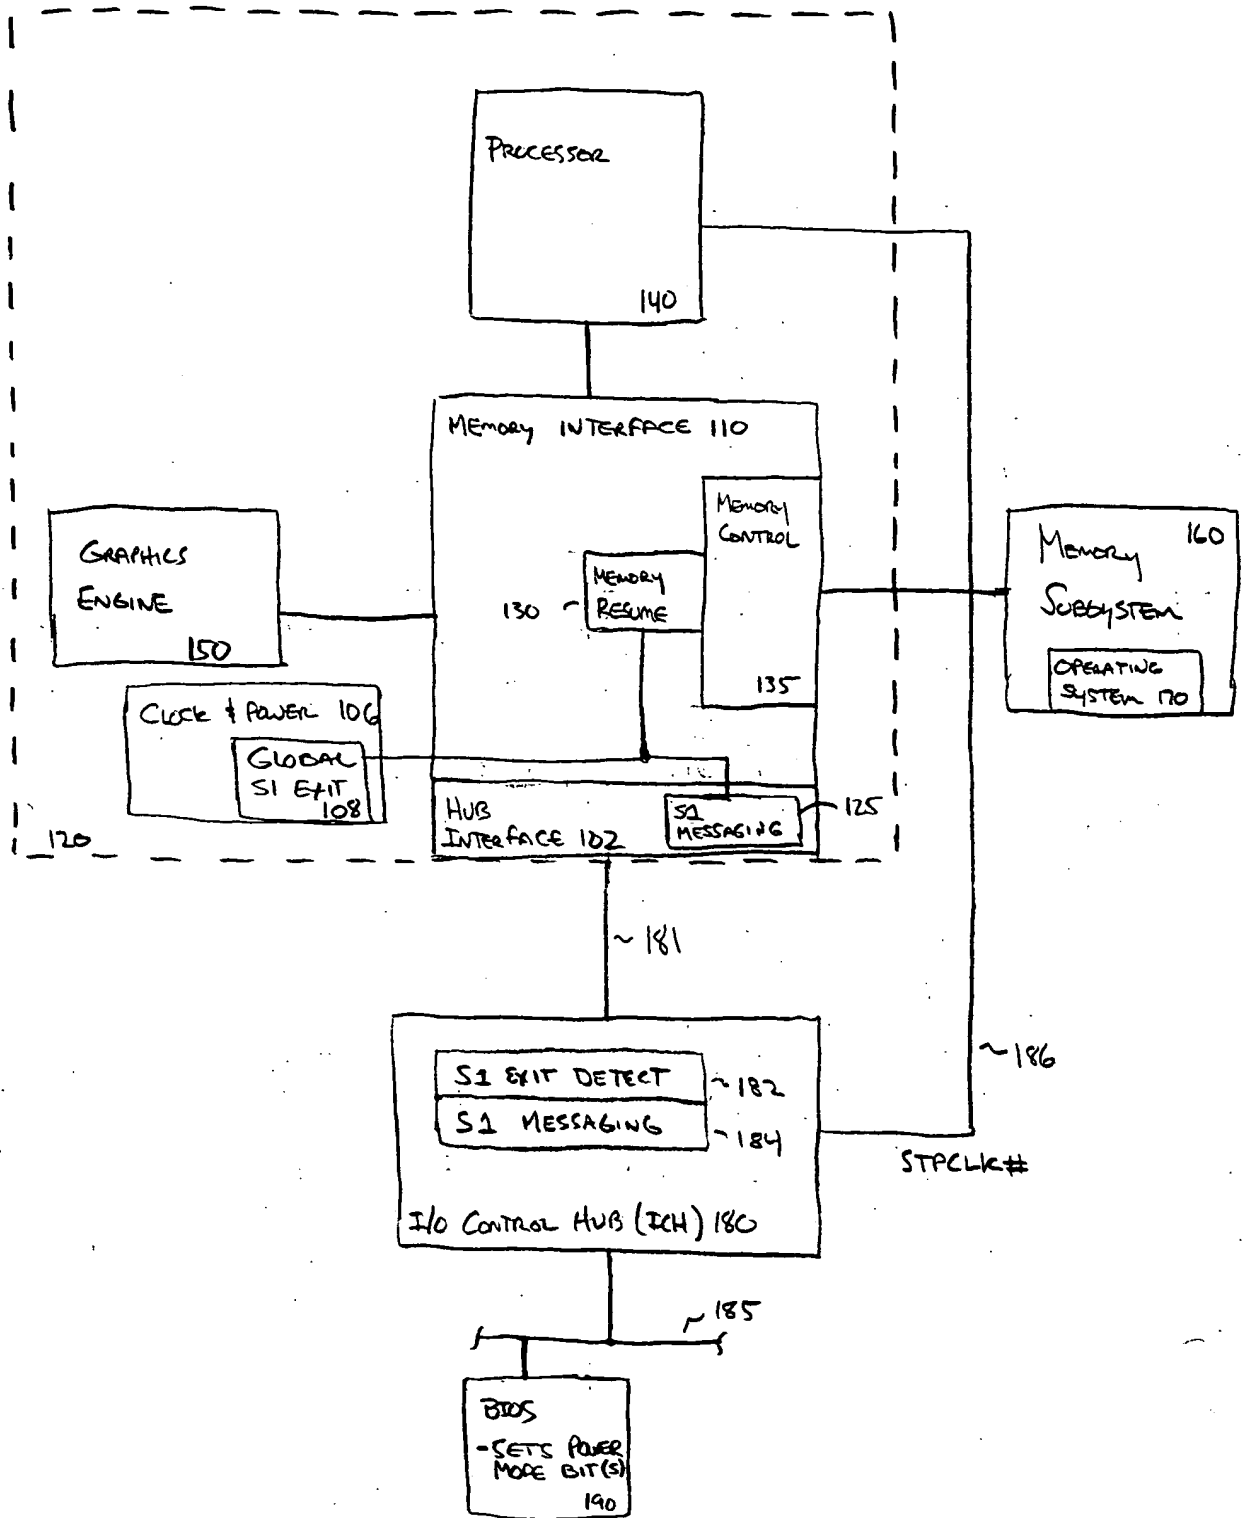 PROCESSOR
140
MEMORY INTERFACE 110
MEMORY
CONTROL
135
MEMORY
RESUME
130
GRAPHICS
ENGINE
150
CLOCK & POWER 106
GLOBAL
S1 EXIT
108
120
HUB
INTERFACE 102
S1
MESSAGING
125
MEMORY
SUBSYSTEM
160
OPERATING
SYSTEM 170
181
S1 EXIT DETECT
182
S1 MESSAGING
184
I/O CONTROL HUB (ICH) 180
186
STPCLK#
185
BIOS
-SETS POWER
MODE BIT(S)
190